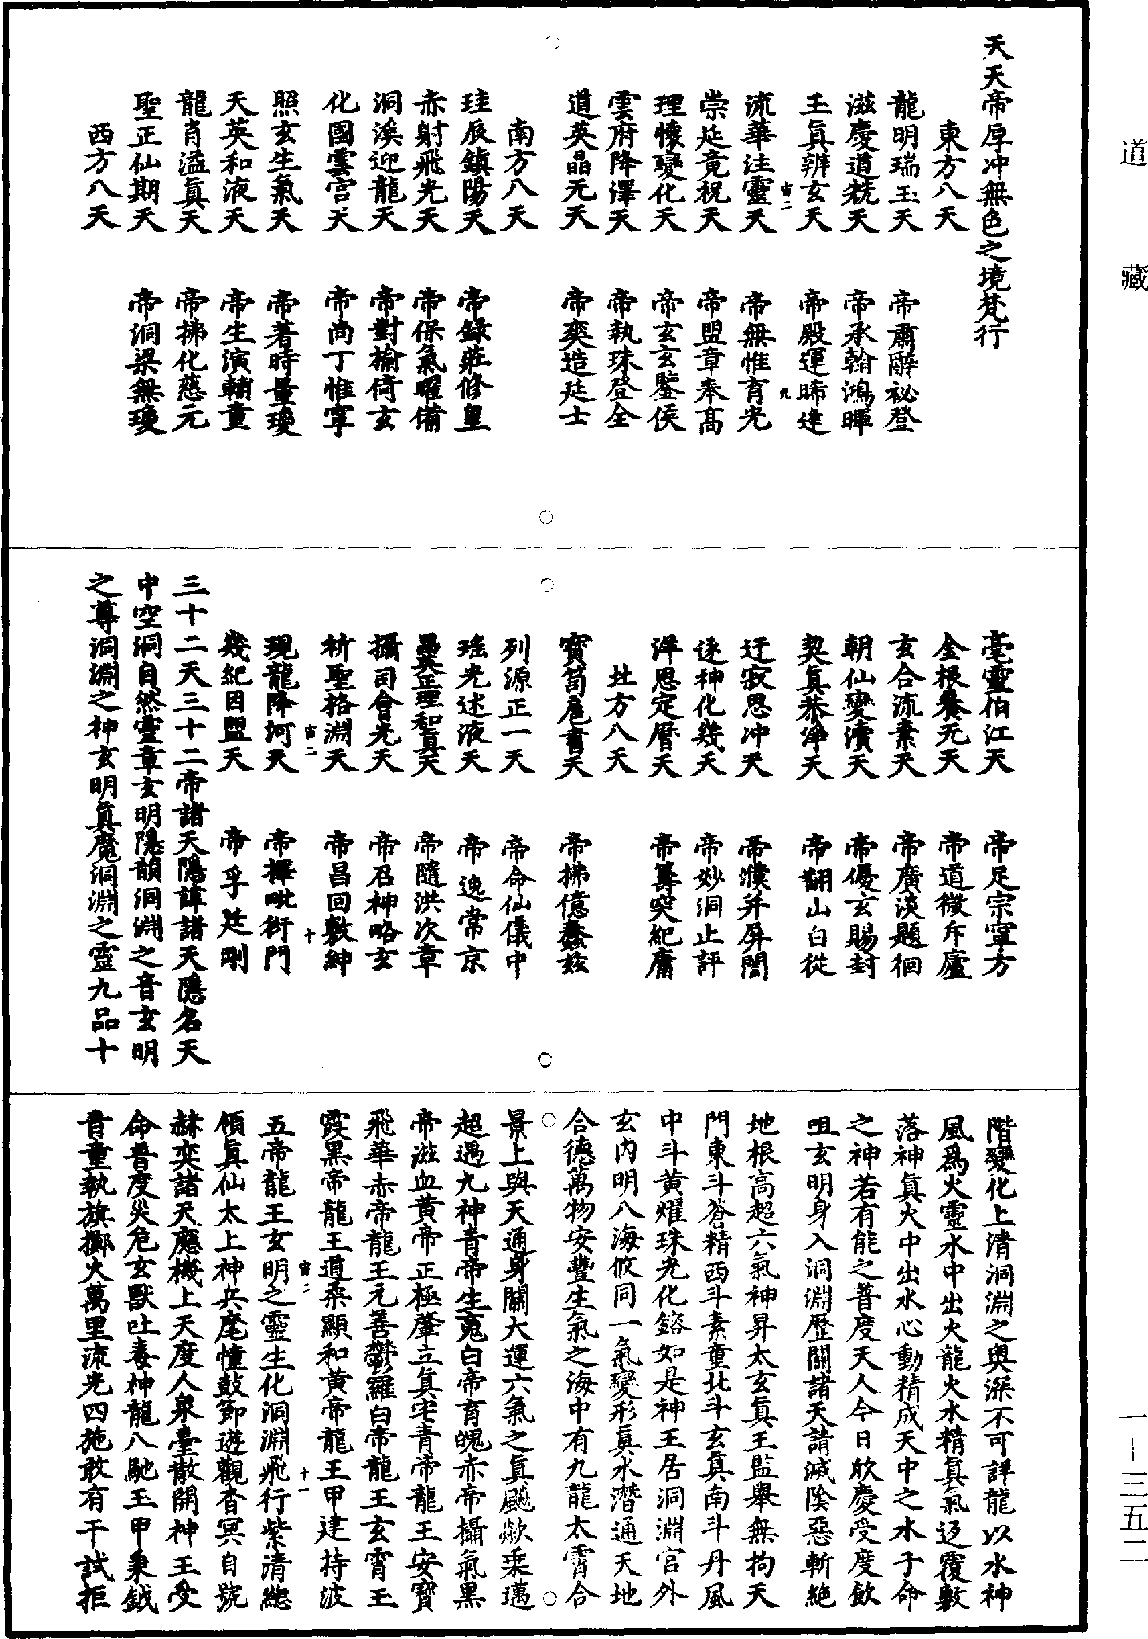 道藏
天天帝厚冲無色之境梵行
東方八天
龍明瑞玉天 帝肅醉祕登
滋慶道䒨天 帝承翰鴻暉
王真辨玄天 帝殿運晞達
宙二 九
流華洼靈天 帝無惟育光
崇延竟祝天 帝盟章奉高
理懷變化天 帝玄玄鑒侯
雲府降澤天 帝執珠登全
道英晶元天 帝奕造廷士
南方八天
珪辰鎮陽天 帝錄莊修皇
赤射飛光天 帝保氣曜備
洞溪迎龍天 帝對榆倚玄
化國雲宮天 帝尚丁惟寧
照玄生氣天 帝著時量瓊
天英和液天 帝生演輔童
龍肖溢真天 帝拂化慈元
聖正仙期天 帝洞梁無瓊
西方八天
毫靈伯江天 帝足宗寧方
全根養元天 帝道微斥廬
玄合流素天 帝廣淡題徊
朝仙變瀆天 帝優玄賜封
契真恭淨天 帝翻山白從
迂寂思冲天 帝濮并屏誾
逐神化幾天 帝妙洞止評
洋恩定曆天 帝算突紀庸
北方八天
寶笥扈書天 帝拂億蠢姟
列源正一天 帝命仙儀中
瑤光述液天 帝逸常京
正理和真天 帝隨洪次章
攝司會光天 帝召神略玄
析聖格淵天 帝昌回敷紳
宙二 十
現龍降河天 帝擇毗衛門
幾紀因盟天 帝孚廷剛
三十二天三十二帝諸天隱諱諸天隱名天
中空洞自然靈章玄明隱韻洞淵之音玄明
之尊洞淵之神玄明真魔洞淵之靈九品十
階變化上清洞淵之奧深不可詳龍以水神
風為火靈水中出火龍火水精真氣迓覆數
落神真火中出水心動精成天中之水子命
之神若有能之普度天人今日欣慶受度飲
咀玄明身入洞淵歷關諸天請滅陰惡斬絶
地根高超六氣神昇太玄真王監舉無拘天
門東斗蒼精西斗素童北斗玄真南斗丹風
中斗黃耀珠光化鎔如是神王居洞淵宮外
玄內明八海攸同一氣變形真水潛通天地
合德萬物安豐生氣之海中有九龍太霄合
景上與天通身關大運六氣之真飈歘乘邁
超遇九神青帝生䰟白帝育魄赤帝攝氣黑
帝滋血黃帝正極肇立真宅青帝龍王安寶
飛華赤帝龍王元善鬱羅白帝龍王玄霄王
霞黑帝龍王道柔顯和黃帝龍王甲建持波
宙二 十一
五帝龍王玄明之靈生化洞淵飛行紫清總
領真仙太上神兵麾幢鼓節遊觀杳冥自號
赫奕諸天應機上天度人衆臺散開神王受
命普度災危玄獸吐毒神龍八馳玉甲秉鉞
青童執旗擲火萬里流光四施敢有干試拒
一—三五二